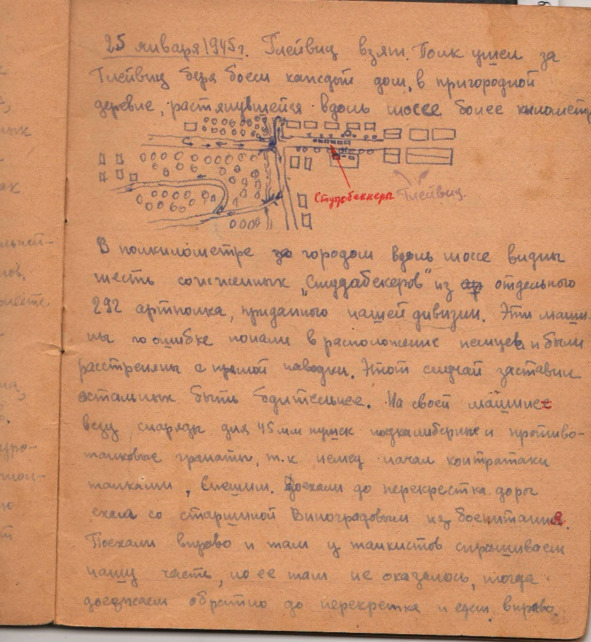 25 января 1945г. Глейвиц взят. Полк ушел за
Глейвиц беря боем каждый дом, в пригородной
деревне, растянувшейся вдоль шоссе более километр
Студебеккера Глейвиц.
В полкилометре за городом вдоль шоссе видны
шесть сожженных „Студабекеров" из отдельного
292 артполка, приданного нашей дивизии. Эти маши-
ны по ошибке попали в расположение немцев и были
расстреляны с прямой наводки. Этот случай заставил
остальных быть бдительнее. На своей машине
везу снаряды для 45 мм пушек подкалиберные и противо-
танковые гранаты, т.к немец начал контратаки
танками, Спешим. Доехали до перекрестка дорог
ехал со старшиной Виноградовым из боепитания.
Поехали вправо и там у танкистов спрашиваем
нашу часть, но ее там не оказалось, тогда
доезжаем обратно до перекретка и едем вправо.